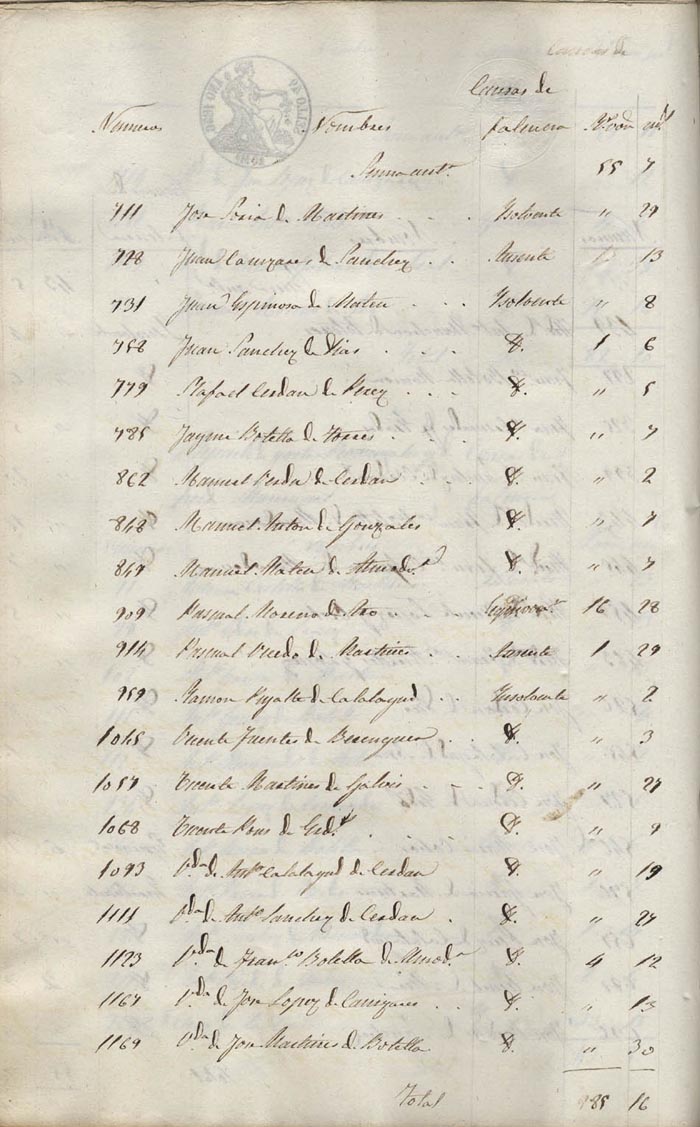 Causas de
Numeros Nombres Rs von
55 7
711 Jose Soria de Martines Ysolvente " 29
728 Juan Canizares de Sanchez Ausente 13
731 Juan Espinosa de Mateu Ysolvente " 8
758 Juan Sanchez de Dias 1 6
779 Rafael Cerdan de Perez " 5
785 Jayme Botella de Torres " 7
862 Manuel de Cerdan " 2
848 Manuel Anton de Gonzales " 7
847 Manuel Mateu de " 7
909 Pascual Moreno de 16 28
914 Pascual de Martines Ausente 1 29
959 Ramon de Calatayud Ynsolvente " 2
1045 Vicente Fuentes de Berenguer " 3
1057 Vicente Martines de Galvis " 27
1068 Vicente Pons de " 9
1093 Vda de Anto Calatayud de Cerdan " 19
1111 Vda de Anto Sanchez de Cerdan " 27
1123 Vda de Franco Botella de 4 12
1167 Vda de Jose Lopez de Canizares " 13
1169 Vda de Jose Martines de Botella " 30
Total 985 16